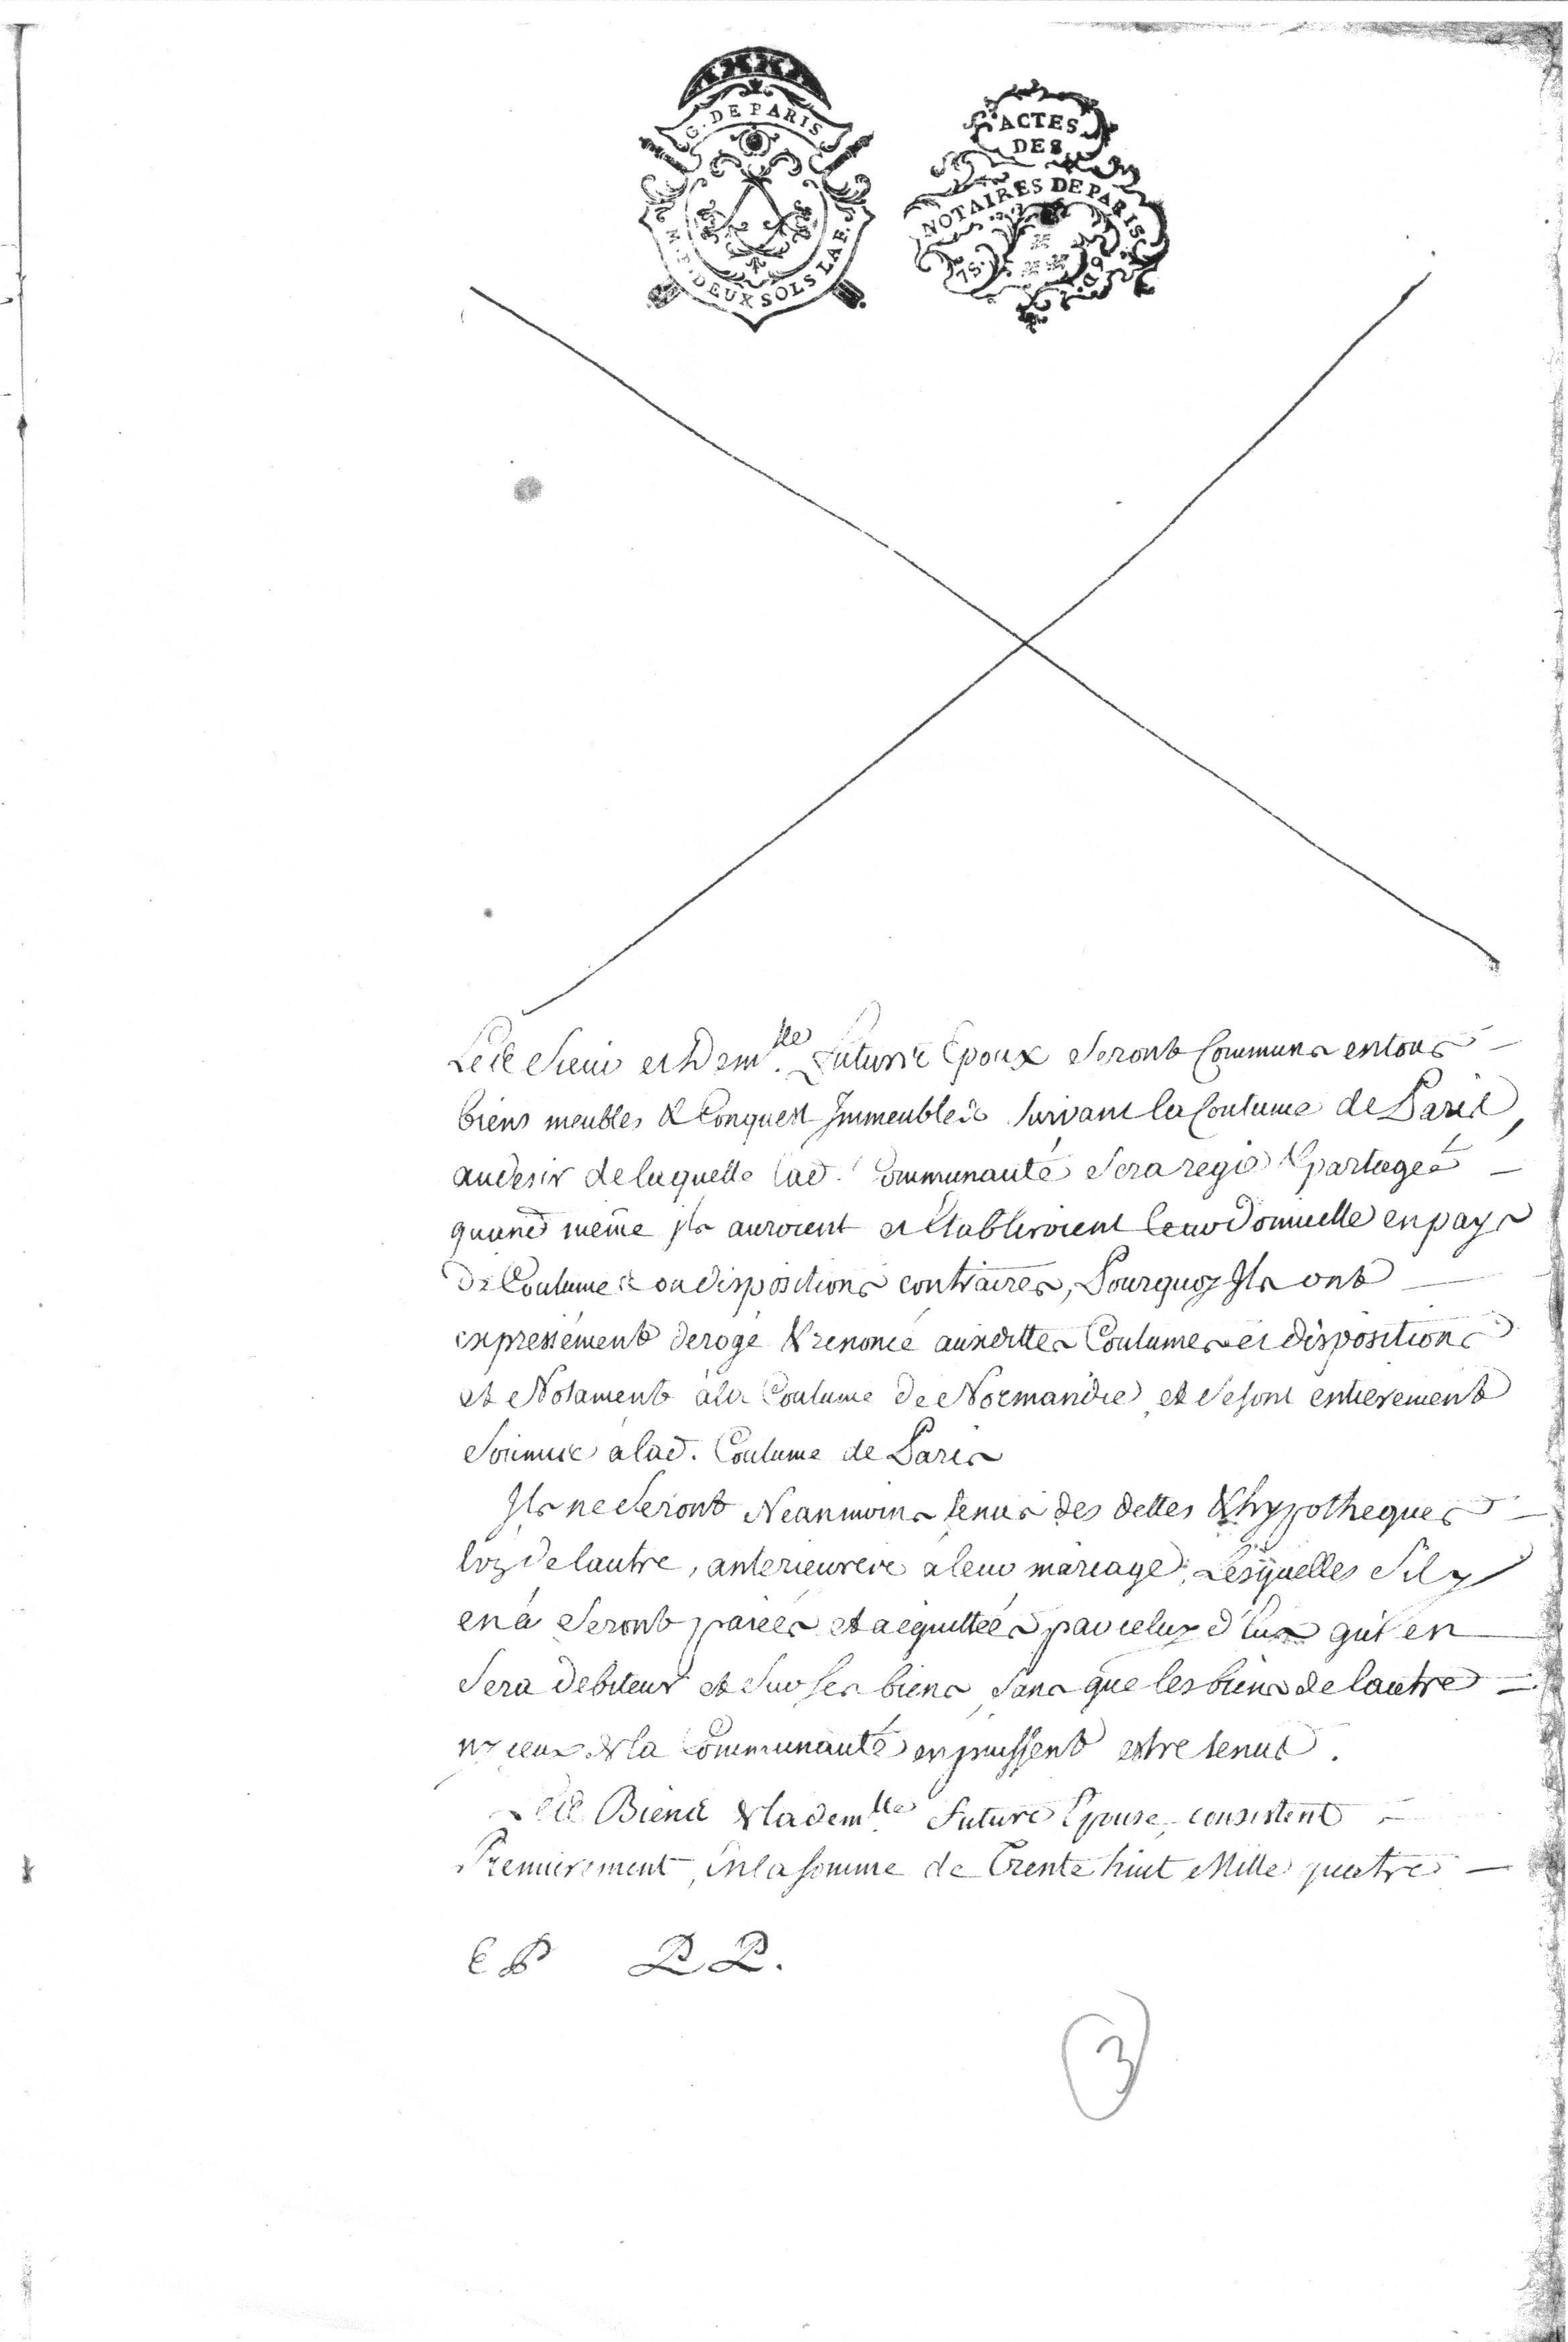 G. DE PARIS
M. P. DEUX SOLS LA F.
ACTES
DES
NOTAIRES DE PARIS
Sieur et Dem.lle Futurs Epoux Seront Communs en tous
biens meubles & Conquest Immeubles Suivant la Coutume de Paris,
au desir de laquelle lad. Communauté Sera regie & partagée
quand même ils auroient et etabliroient leur domicille en pays
de Coutumes ou dispositions contraires, Pourquoy Ils ont
expressément derogé & renoncé auxdittes Coutumes et dispositions
et Notament à la Coutume de Normandie et Se sont entierement
Soumis a lad. Coutume de Paris
Ils ne Seront Neanmoins tenus des dettes & hypotheques
lun de lautre, anterieures a leur mariage, Lesquelles S'il y
en à Seront paiées et acquittées par celuy d'Eux qui en
Sera debiteur et Sur Ses biens Sans que les biens de lautre
ny ceux de la Communauté en puissent estre tenus.
Biens de lad. dem.lle Future Epouse consistent
Premierement, En la somme de Trente huit Mille quatre
3